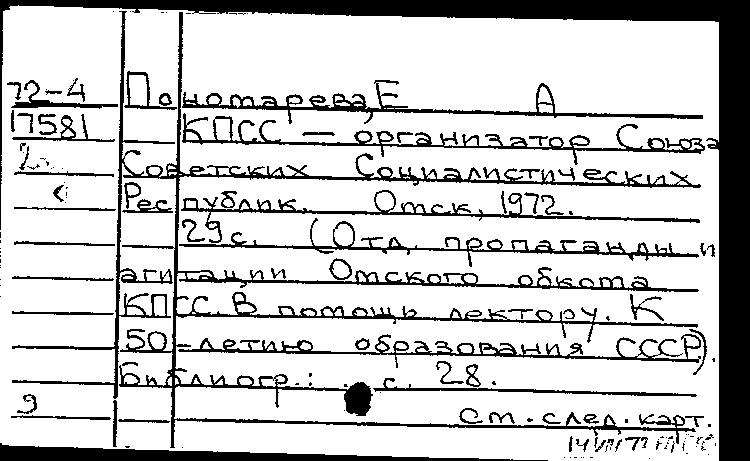 72-4 Пономарева, Е А
17581 КПСС — организатор Союза
2. Советских Социалистических
Республик. Омск, 1972.
29 с. (Отд. пропаганды и
агитации Омского обкома
КПСС. В помощь лектору. К
50-летию образования СССР).
Библиогр.: с. 28.
9 см. след. карт.